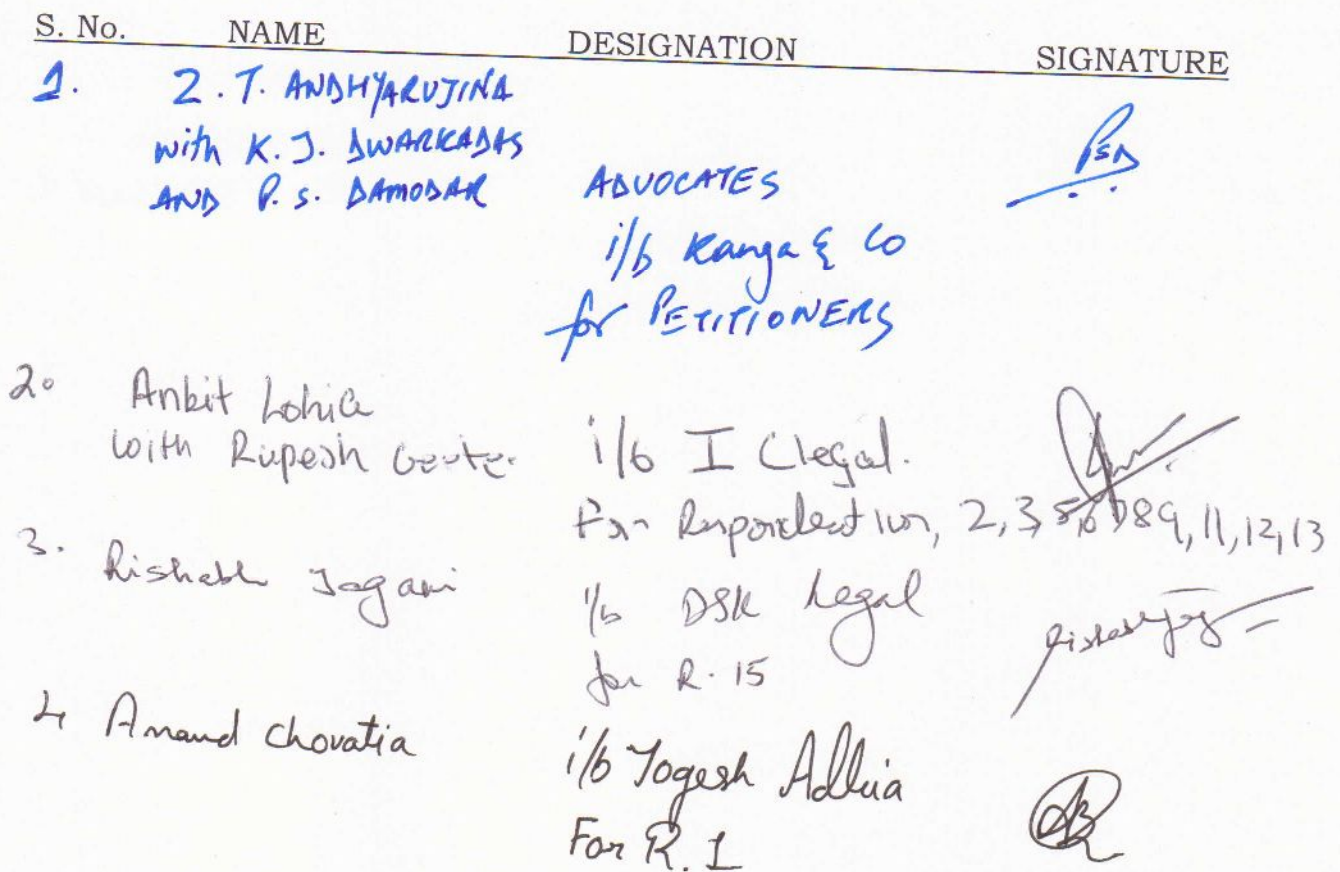 S. No. NAME DESIGNATION SIGNATURE
1. Z. T. ANDHYARUJINA
with K. J. DWARKADAS
AND P. S. DAMODAR ADVOCATES PSD
i/b Kanga & Co
for PETITIONERS
2. Ankit Lohia
with Rupesh i/b I C Legal.
For 2, 3, 5, 6, 7, 8, 9, 11, 12, 13
3. Rishabh Jogani i/b DSK Legal
for R. 15
4 Anand Chovatia i/b Yogesh Adhia
For R. 1